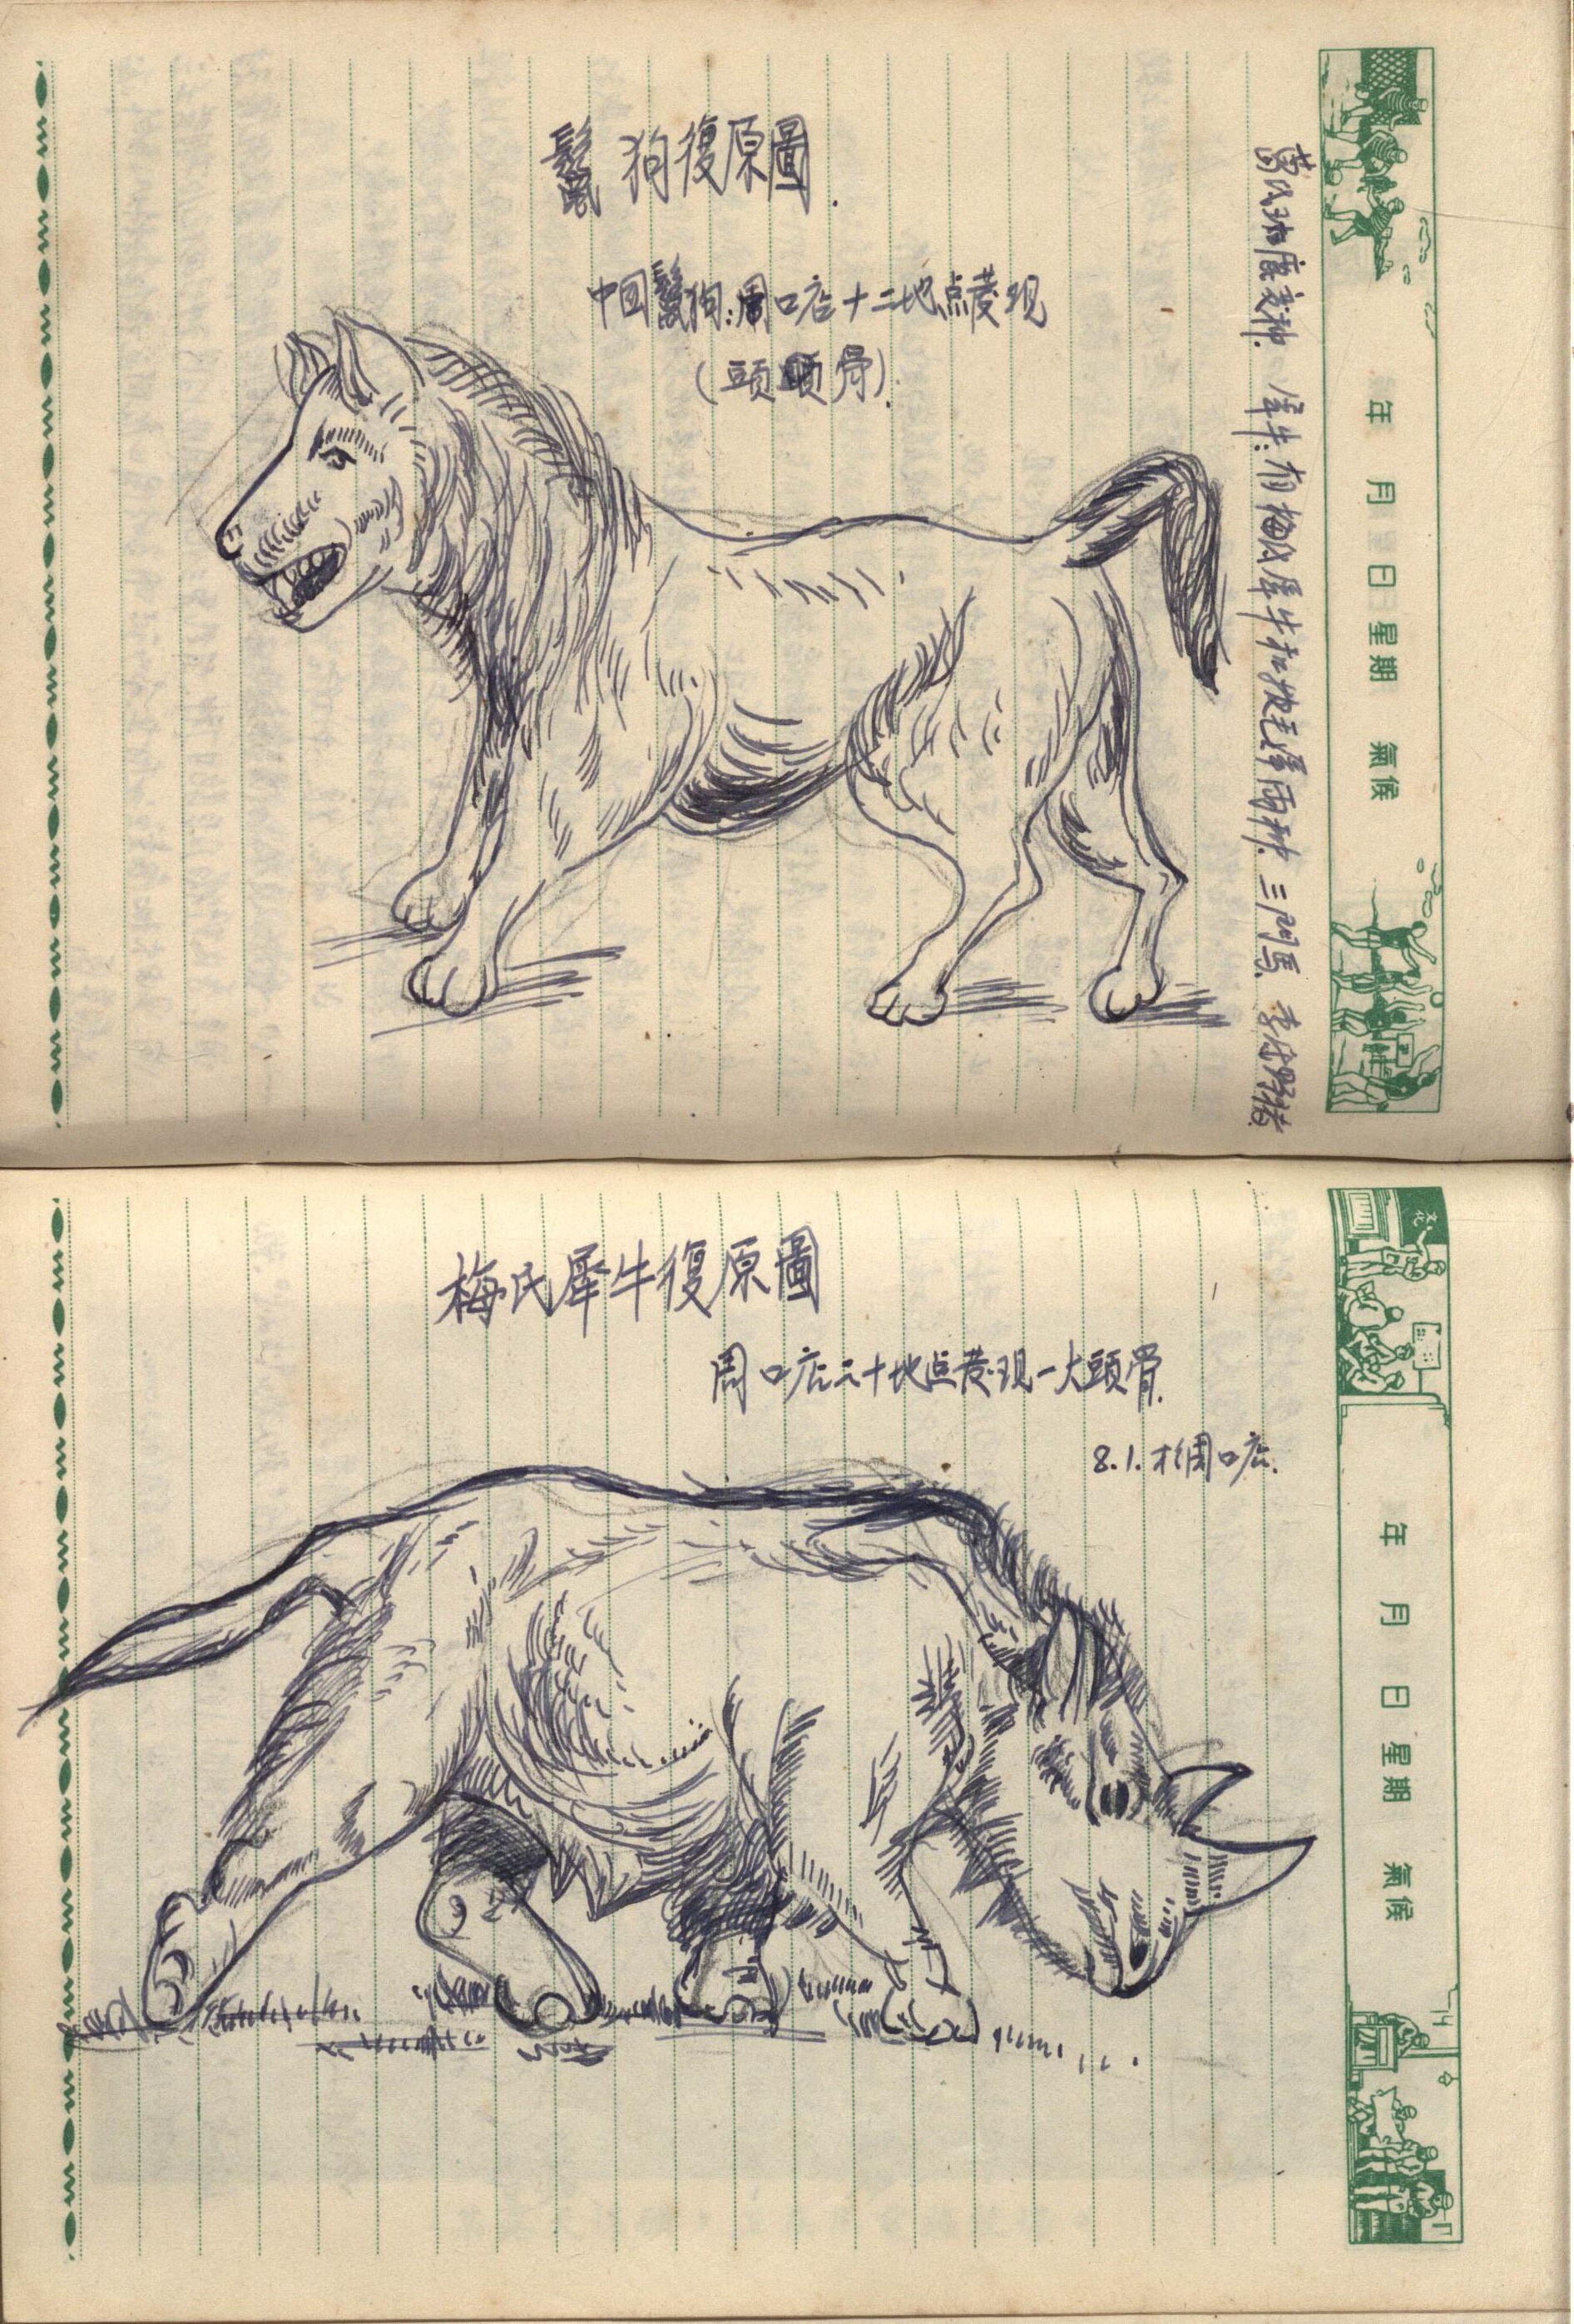 鬣狗復原圖.
中国鬣狗:周口店十二地点发现
(頭頂骨).
葛氏斑鹿変种. 犀牛:有梅氏犀牛和披毛犀両种. 三门馬. 李氏野猪.
年 月 日 星期 氣候
梅氏犀牛復原圖
周口店二十地点发现一大頭骨.
8.1.于周口店.
文化
年 月 日 星期 氣候